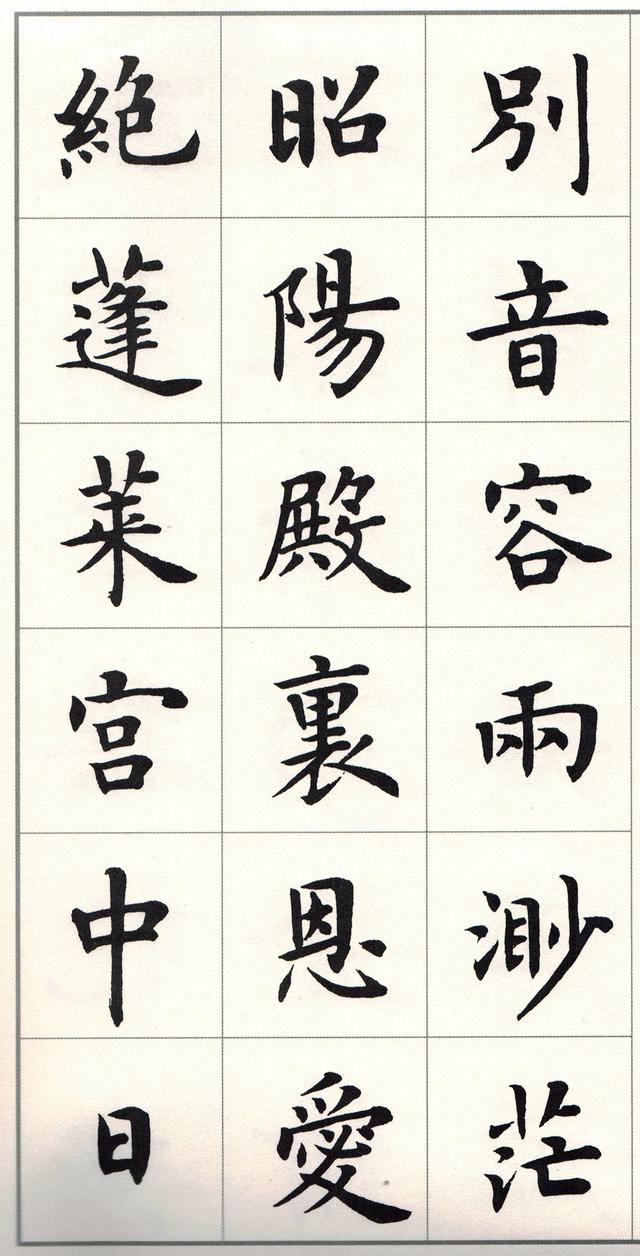 別音容雨渺茫
昭陽殿裏恩愛
絶蓬萊宮中日